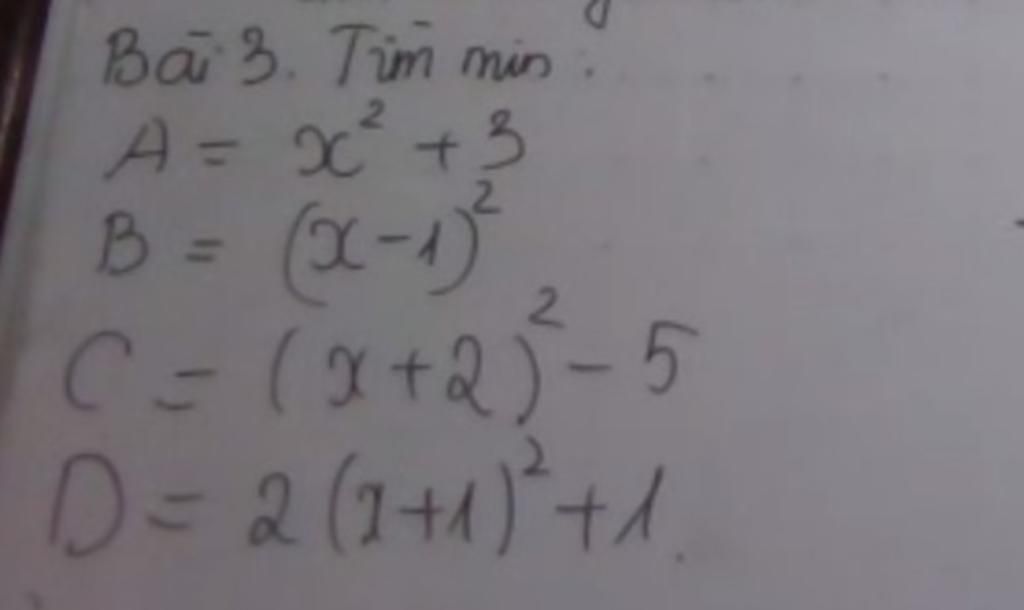 Bài 3. Tìm min:
A = x² + 3
B = (x-1)²
C = (x+2)² - 5
D = 2(x+1)² + 1.